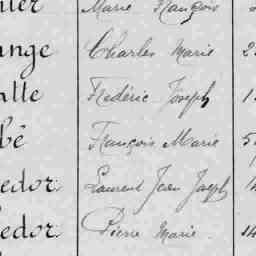 Marie François
ange Charles Marie 2
Frédéric Joseph 1
bé François Marie 5
edor Laurent Jean Joseph
edor Pierre Marie 14